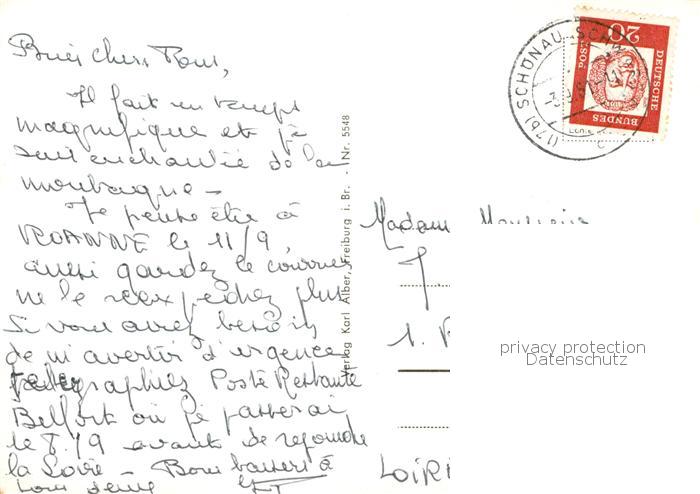 Bien chers Tous,
Il fait un temps
magnifique et je
suis enchantée de la
montagne –
Je pense être à
ROANNE le 11/9,
aussi gardez le courrier
ne le réexpédiez plus
Si vous avez besoin
de m'avertir d'urgence
télégraphiez Poste Restante
Belfort où je passerai
le 8/9 avant de rejoindre
la Loire – Bons baisers à
tous deux
Verlag Karl Alber, Freiburg i. Br. - Nr. 5548
(17b) SCHÖNAU
20
DEUTSCHE
BUNDES
POST
Madame Monsieur
J
1.
LOIR
privacy protection
Datenschutz